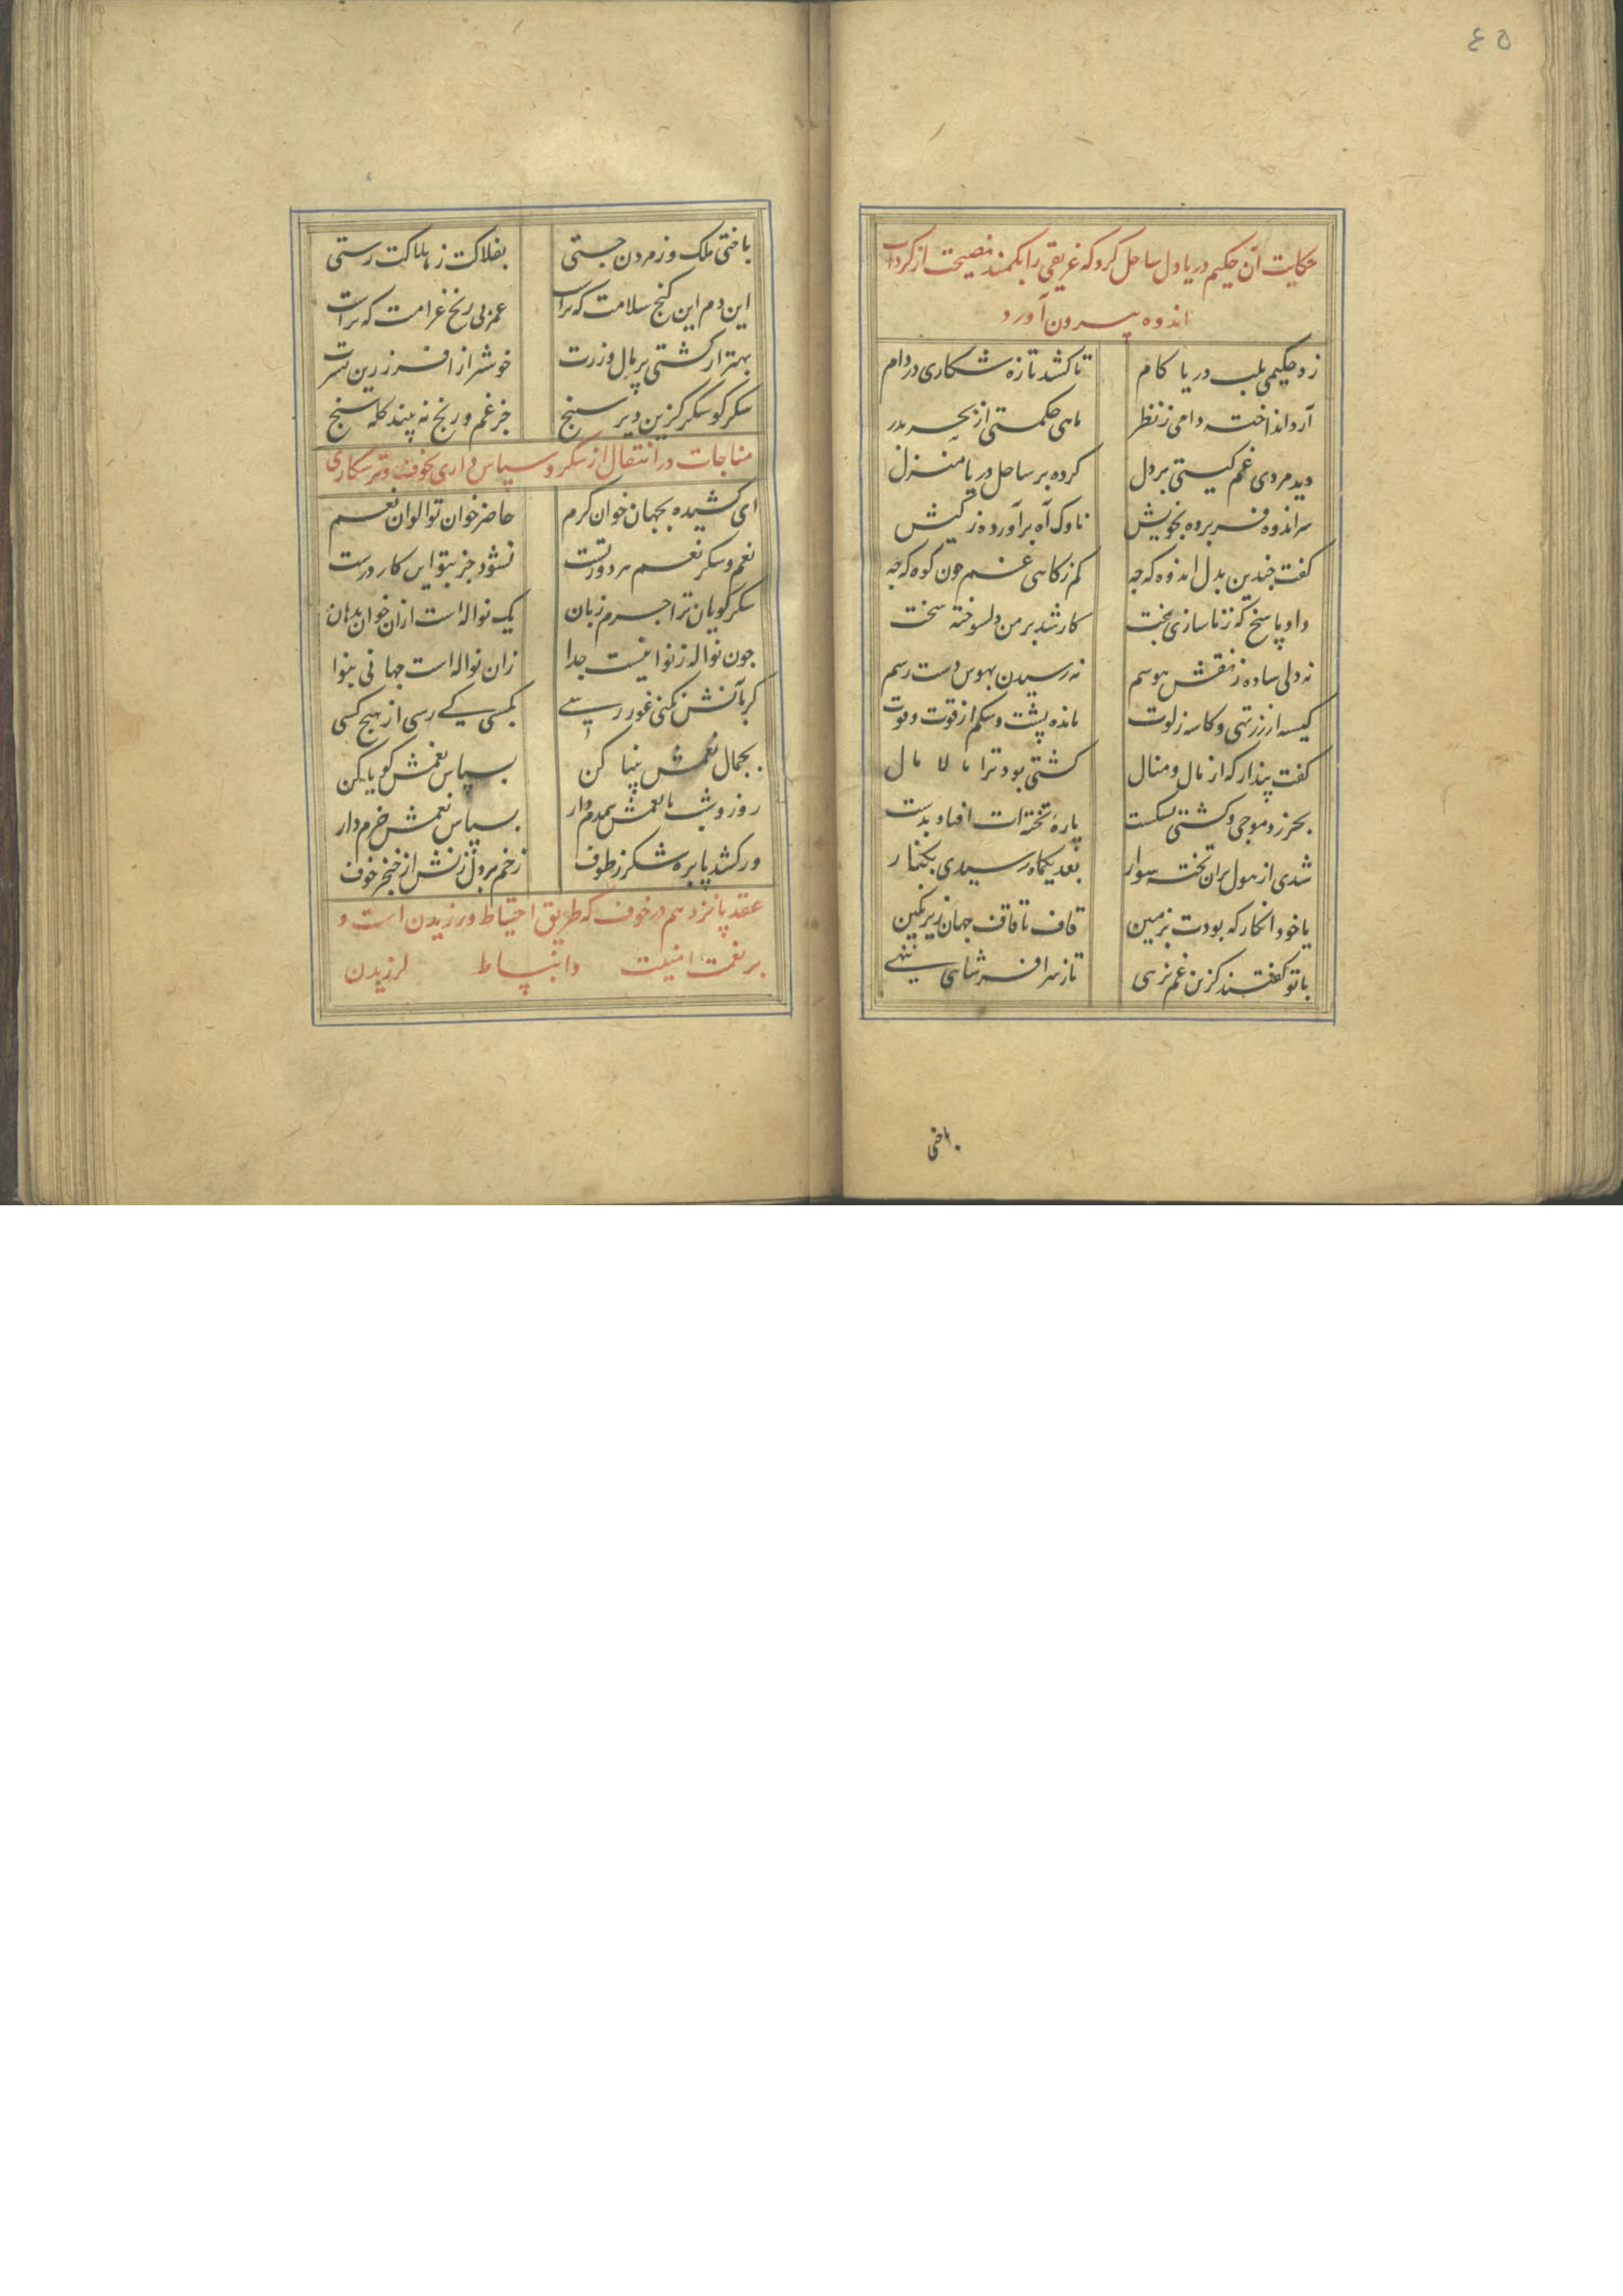 ٤٥
حکایت آن حکیم دریادل ساحل کرد که غریقی را بکمند نصیحت از کرداب
اندوه بیرون آورد
زد حکیمی بلب دریا کام    تا کشد تازه شکاری در دام
آرد انداخته دامی ز نظر    ماهی حکمتی از بحر بدر
دید مردی غم کیتی بر دل    کرده بر ساحل دریا منزل
سر اندوه فرو برده بخویش    ناوک آه برآورده ز کیش
کفت چندین بدل اندوه که چه    کم ز کاهی غم چون کوه که چه
داد پاسخ که ز ناسازی بخت    کار شد بر من دلسوخته سخت
نه دلی ساده ز نقش هوسم    نه رسیدن بهوس دست رسم
کیسه از زر تهی و کاسه ز لوت    مانده پشت و شکم از قوت و قوت
کفت پندار که از مال و منال    کشتی بود ترا مالامال
بحر زد موجی و کشتی بشکست    پارهٔ تخته ات افتاد بدست
شدی از هول بران تخته سوار    بعد یکماه رسیدی بکنار
یا خود انکار که بودت بزمین    قاف تا قاف جهان زیر نکین
با تو کفتند کزین غم نرهی    تا ز سر افسر شاهی ننهی
باختی
باختی ملک و ز مردن جستی    بفلاکت ز هلاکت رستی
این دم این کنج سلامت که تراست    عمر بی رنج غرامت که تراست
بهتر از کشتی پر مال و زرت    خوشتر از افسر زرین سرت
شکر کو شکر کزین دیر سپنج    جز غم و رنج نه بیند کله سنج
مناجات در انتقال از شکر و سپاس داری بخوف و ترسکاری
ای کشیده بجهان خوان کرم    حاضر خوان تو الوان نعم
نعم و شکر نعم هر دو ز تست    نشود جز بتو این کار درست
شکر کویان ترا جرم زبان    یک نواله است ازان خوان بدهان
چون نواله ز نوا نیست جدا    زان نواله است جهانی بنوا
کر بآنش نکنی غور رسی    بکسی کی رسی از هیچ کسی
بجمال نعمش بینا کن    بسپاس نعمش کویا کن
روز و شب با نعمش همدم دار    بسپاس نعمش خرم دار
ور کشد پا بره شکر ز طوف    زخم بر دل زنش از خنجر خوف
عقد پانزدهم در خوف که طریق احتیاط ورزیدن است و
بر نعمت امنیت و انبساط لرزیدن